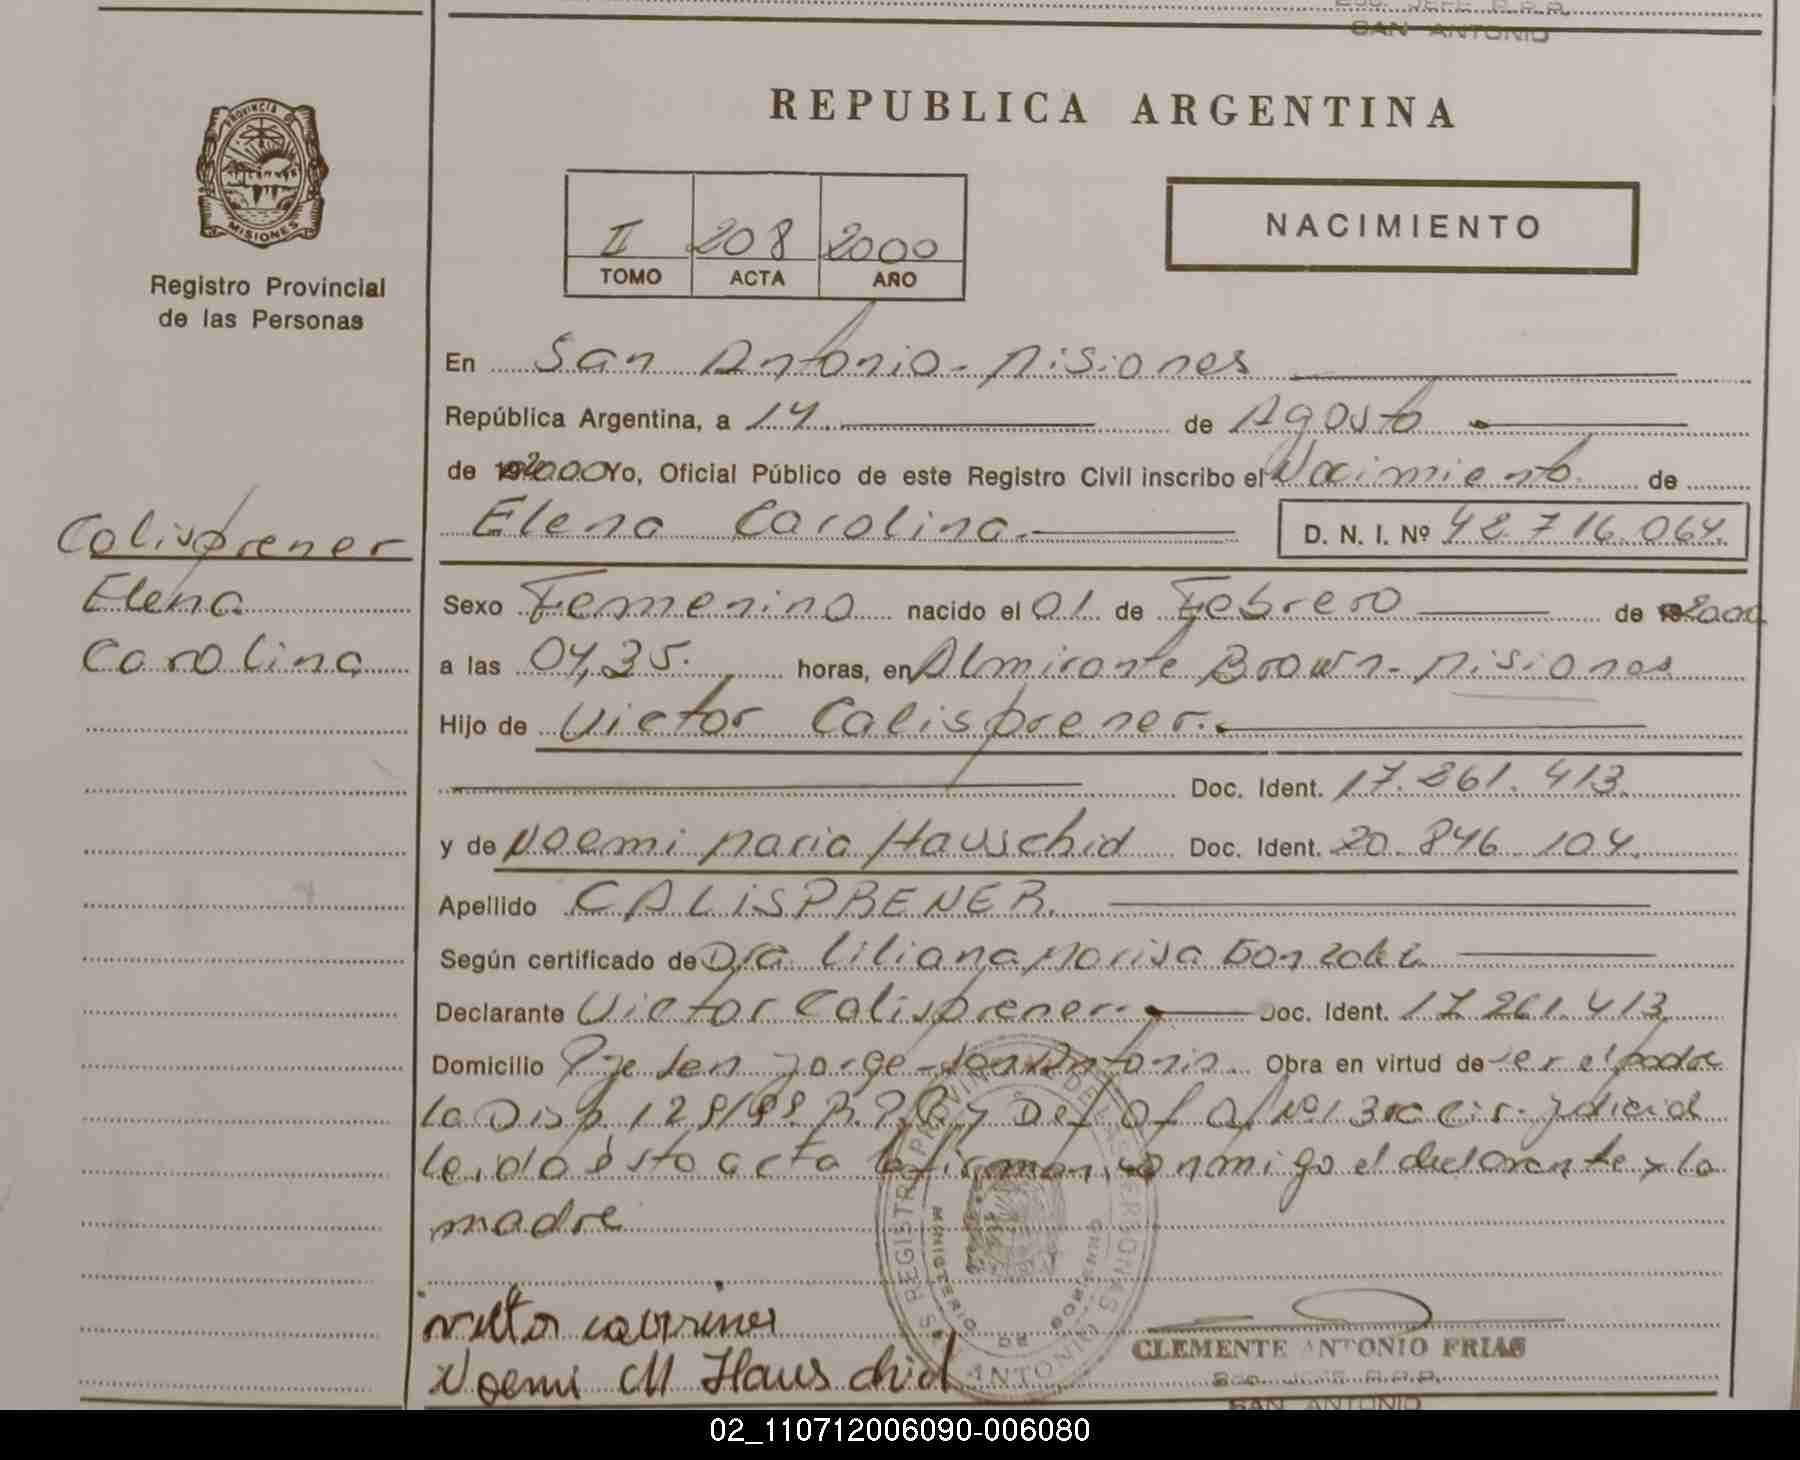 SAN ANTONIO
REPUBLICA ARGENTINA
PROVINCIA DE
MISIONES
Registro Provincial
de las Personas
II 208 2000
TOMO ACTA AÑO
NACIMIENTO
En San Antonio - Misiones
República Argentina, a 14 de Agosto
de 2000 Yo, Oficial Público de este Registro Civil inscribo el Nacimiento de
Elena Carolina. D. N. I. Nº 42.716.064.
Calisprener
Elena
Carolina
Sexo Femenino nacido el 01 de Febrero de 2000
a las 04,35. horas, en Almirante Brown - Misiones
Hijo de Victor Calisprener.
Doc. Ident. 17.261.413.
y de Noemi Maria Hauschid Doc. Ident. 20.846.104.
Apellido CALISPRENER.
Según certificado de Dra Liliana Marisa Gonzalez
Declarante Victor Calisprener Doc. Ident. 17.261.413
Domicilio Pje San Jorge - San Antonio. Obra en virtud de ser el padre
la Disp. 128/98. R.P.P. y Def Of Of Nº 1 3ra Cir. Judicial
leida esta acta la firman conmigo el declarante y la
madre
Noemi M Hauschid
CLEMENTE ANTONIO FRIAS
SAN ANTONIO
02_110712006090-006080